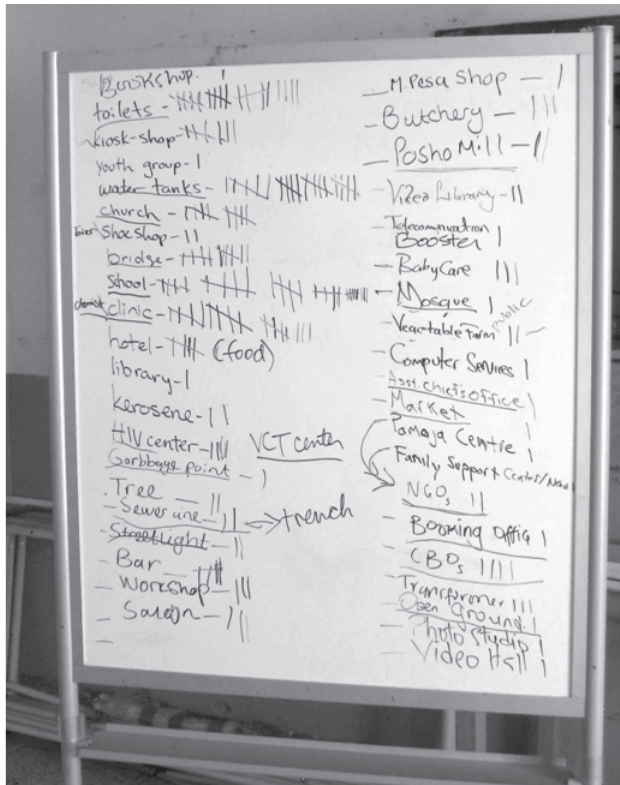 Bookshop.
toilets -
kiosk-shop-
youth group-
water tanks -
church -
Shoe shop -
bridge-
School -
clinic -
hotel - (food)
library-
kerosene-
HIV center- VCT center
Garbbage point -
Tree -
- Sewer line - → trench
- Streetlight -
- Bar -
- Workshop -
- Saloon -
- M.Pesa Shop -
- Butchery -
- Posho Mill -
- Video Library -
- Telecommunication
Booster
- BabyCare
- Mosque
- Vegetable Farm public
- Computer Services
- Asst. Chiefs office
- Market
Pamoja Centre
Family Support Center/
NGOs
- Booking Office
- CBOs
- Transformer
- Open Ground
- Photo Studio
- Video Hall